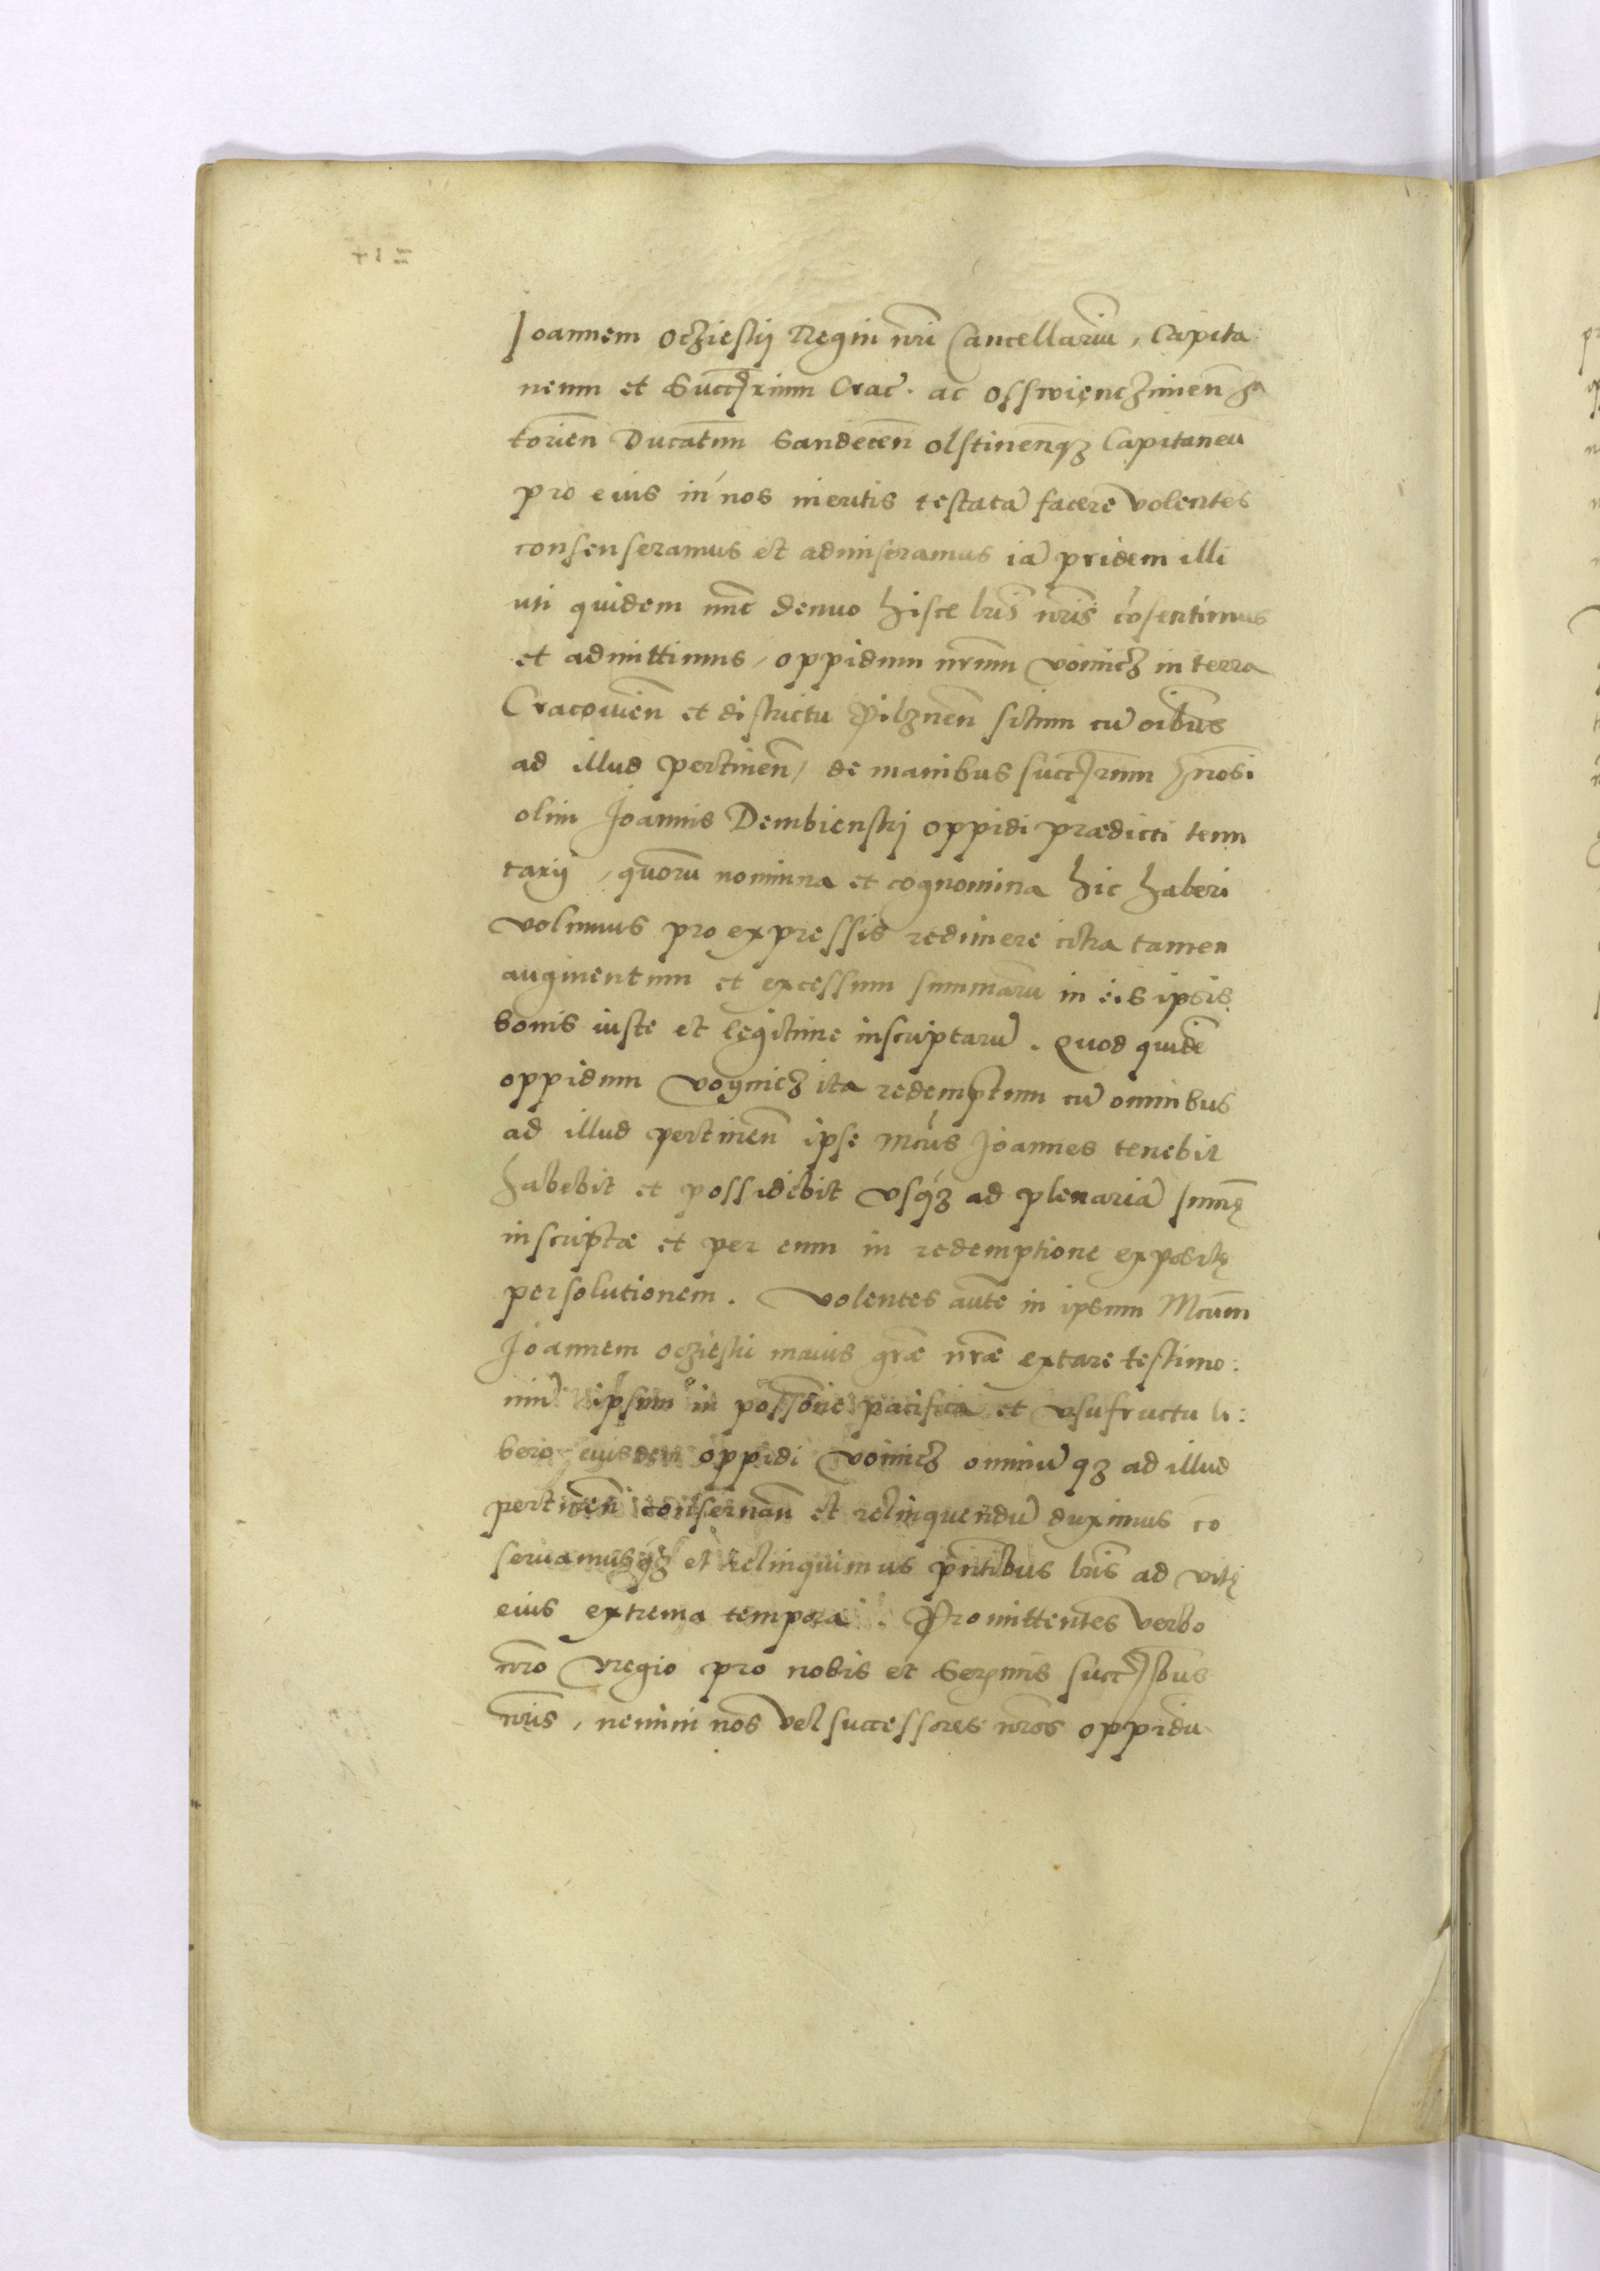 Joannem Ocziesky Regni nri Cancellariu, Capita
neum et Succrium Crac. ac Osswienczimen Za
torien Ducatum Sandecen Olstinenq3 Capitaneu
pro eius in nos meritis testata facere volentes
consenseramus et admiseramus ia pridem illi
uti quidem nunc denuo hisce lris nris cosentimus
et admittimus, oppidum nrum Voinicz in terra
Cracovien et districtu Pilznen situm cu oibus
ad illud pertinen, de manibus succrum gnosi
olim Joannis Dembiensky oppidi praedicti tenu
tarij, quoru nomina et cognomina hic haberi
volumus pro expressis redimere citra tamen
augmentum et excessum summaru in eis ipsis
bonis iuste et legitime inscriptaru. Quod quide
oppidum Voynicz ita redemptum cu omnibus
ad illud pertinen ipse Mcus Joannes tenebit
habebit et possidebit usq3 ad plenaria summę
inscriptae et per eum in redemptione expositę
persolutionem. Volentes aute in ipsum Mcum
Joannem Ocziesky maius grae nrae extare testimo:
niu ipsum in possone pacifica et usufructu li:
bero eiusdem oppidi Voinicz omniu q3 ad illud
pertinen conservan et relinquendu duximus co
servamusq3 et relinquimus pntibus lris ad vitę
eius extrema tempora. Promittentes verbo
nro regio pro nobis et Sermis succribus
nris, nemini nos vel successores nros oppidu